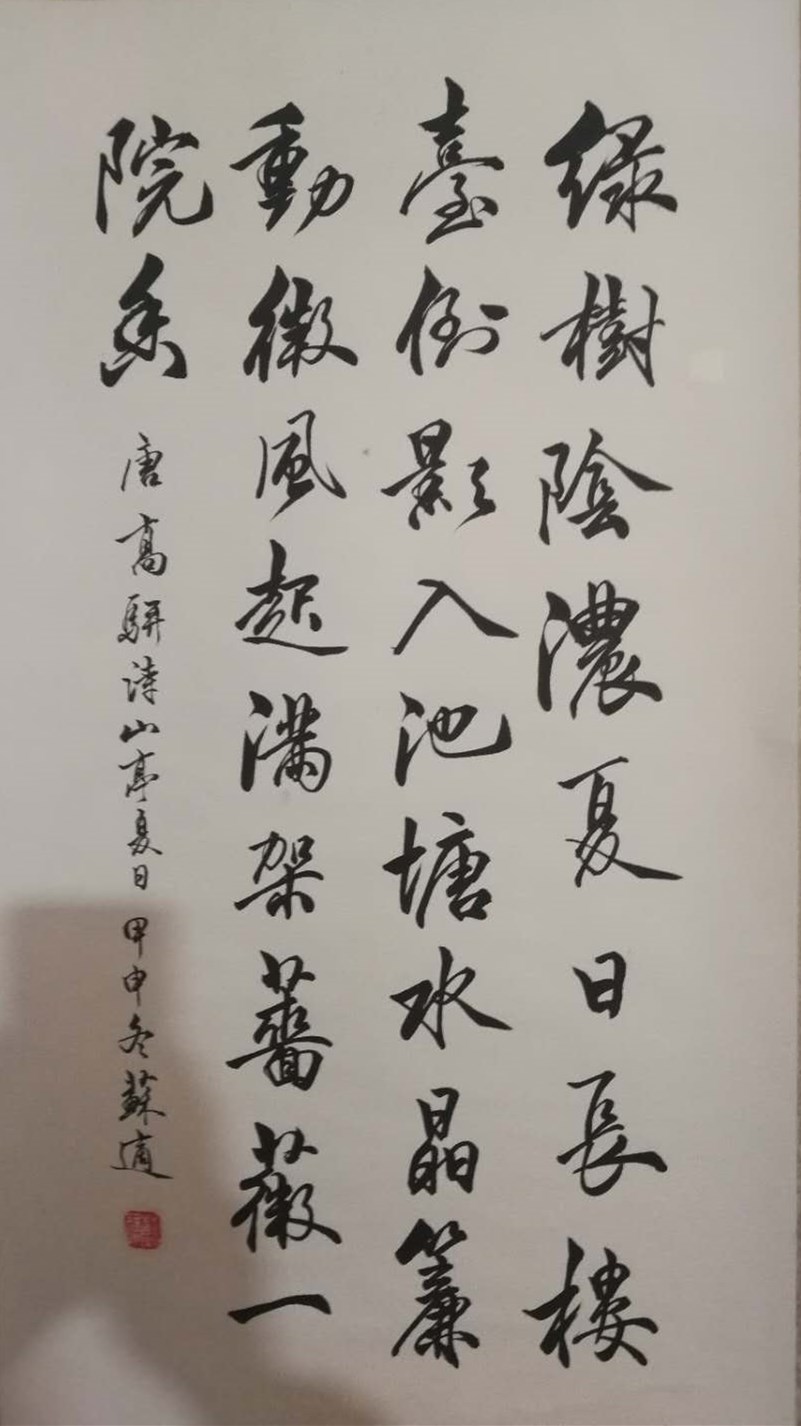 绿樹陰濃夏日長樓
臺倒影入池塘水晶簾
動微風起滿架薔薇一
院香
唐高駢詩山亭夏日 甲申冬蘇適